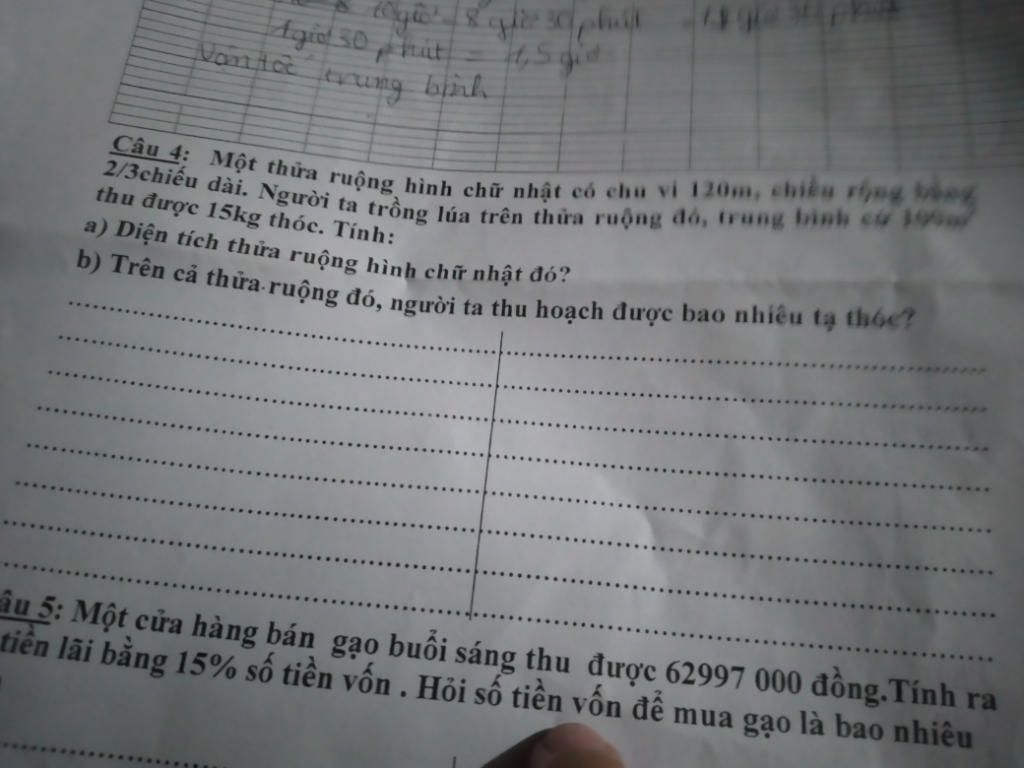 10giờ - 8 giờ 30 phút = 1 giờ 30 phút
1giờ 30 phút = 1,5 giờ
Vận tốc trung bình
Câu 4: Một thửa ruộng hình chữ nhật có chu vi 120m, chiều rộng bằng
2/3chiếu dài. Người ta trồng lúa trên thửa ruộng đó, trung bình cứ 100m²
thu được 15kg thóc. Tính:
a) Diện tích thửa ruộng hình chữ nhật đó?
b) Trên cả thửa ruộng đó, người ta thu hoạch được bao nhiêu tạ thóc?
âu 5: Một cửa hàng bán gạo buổi sáng thu được 62997 000 đồng.Tính ra
tiền lãi bằng 15% số tiền vốn . Hỏi số tiền vốn để mua gạo là bao nhiêu